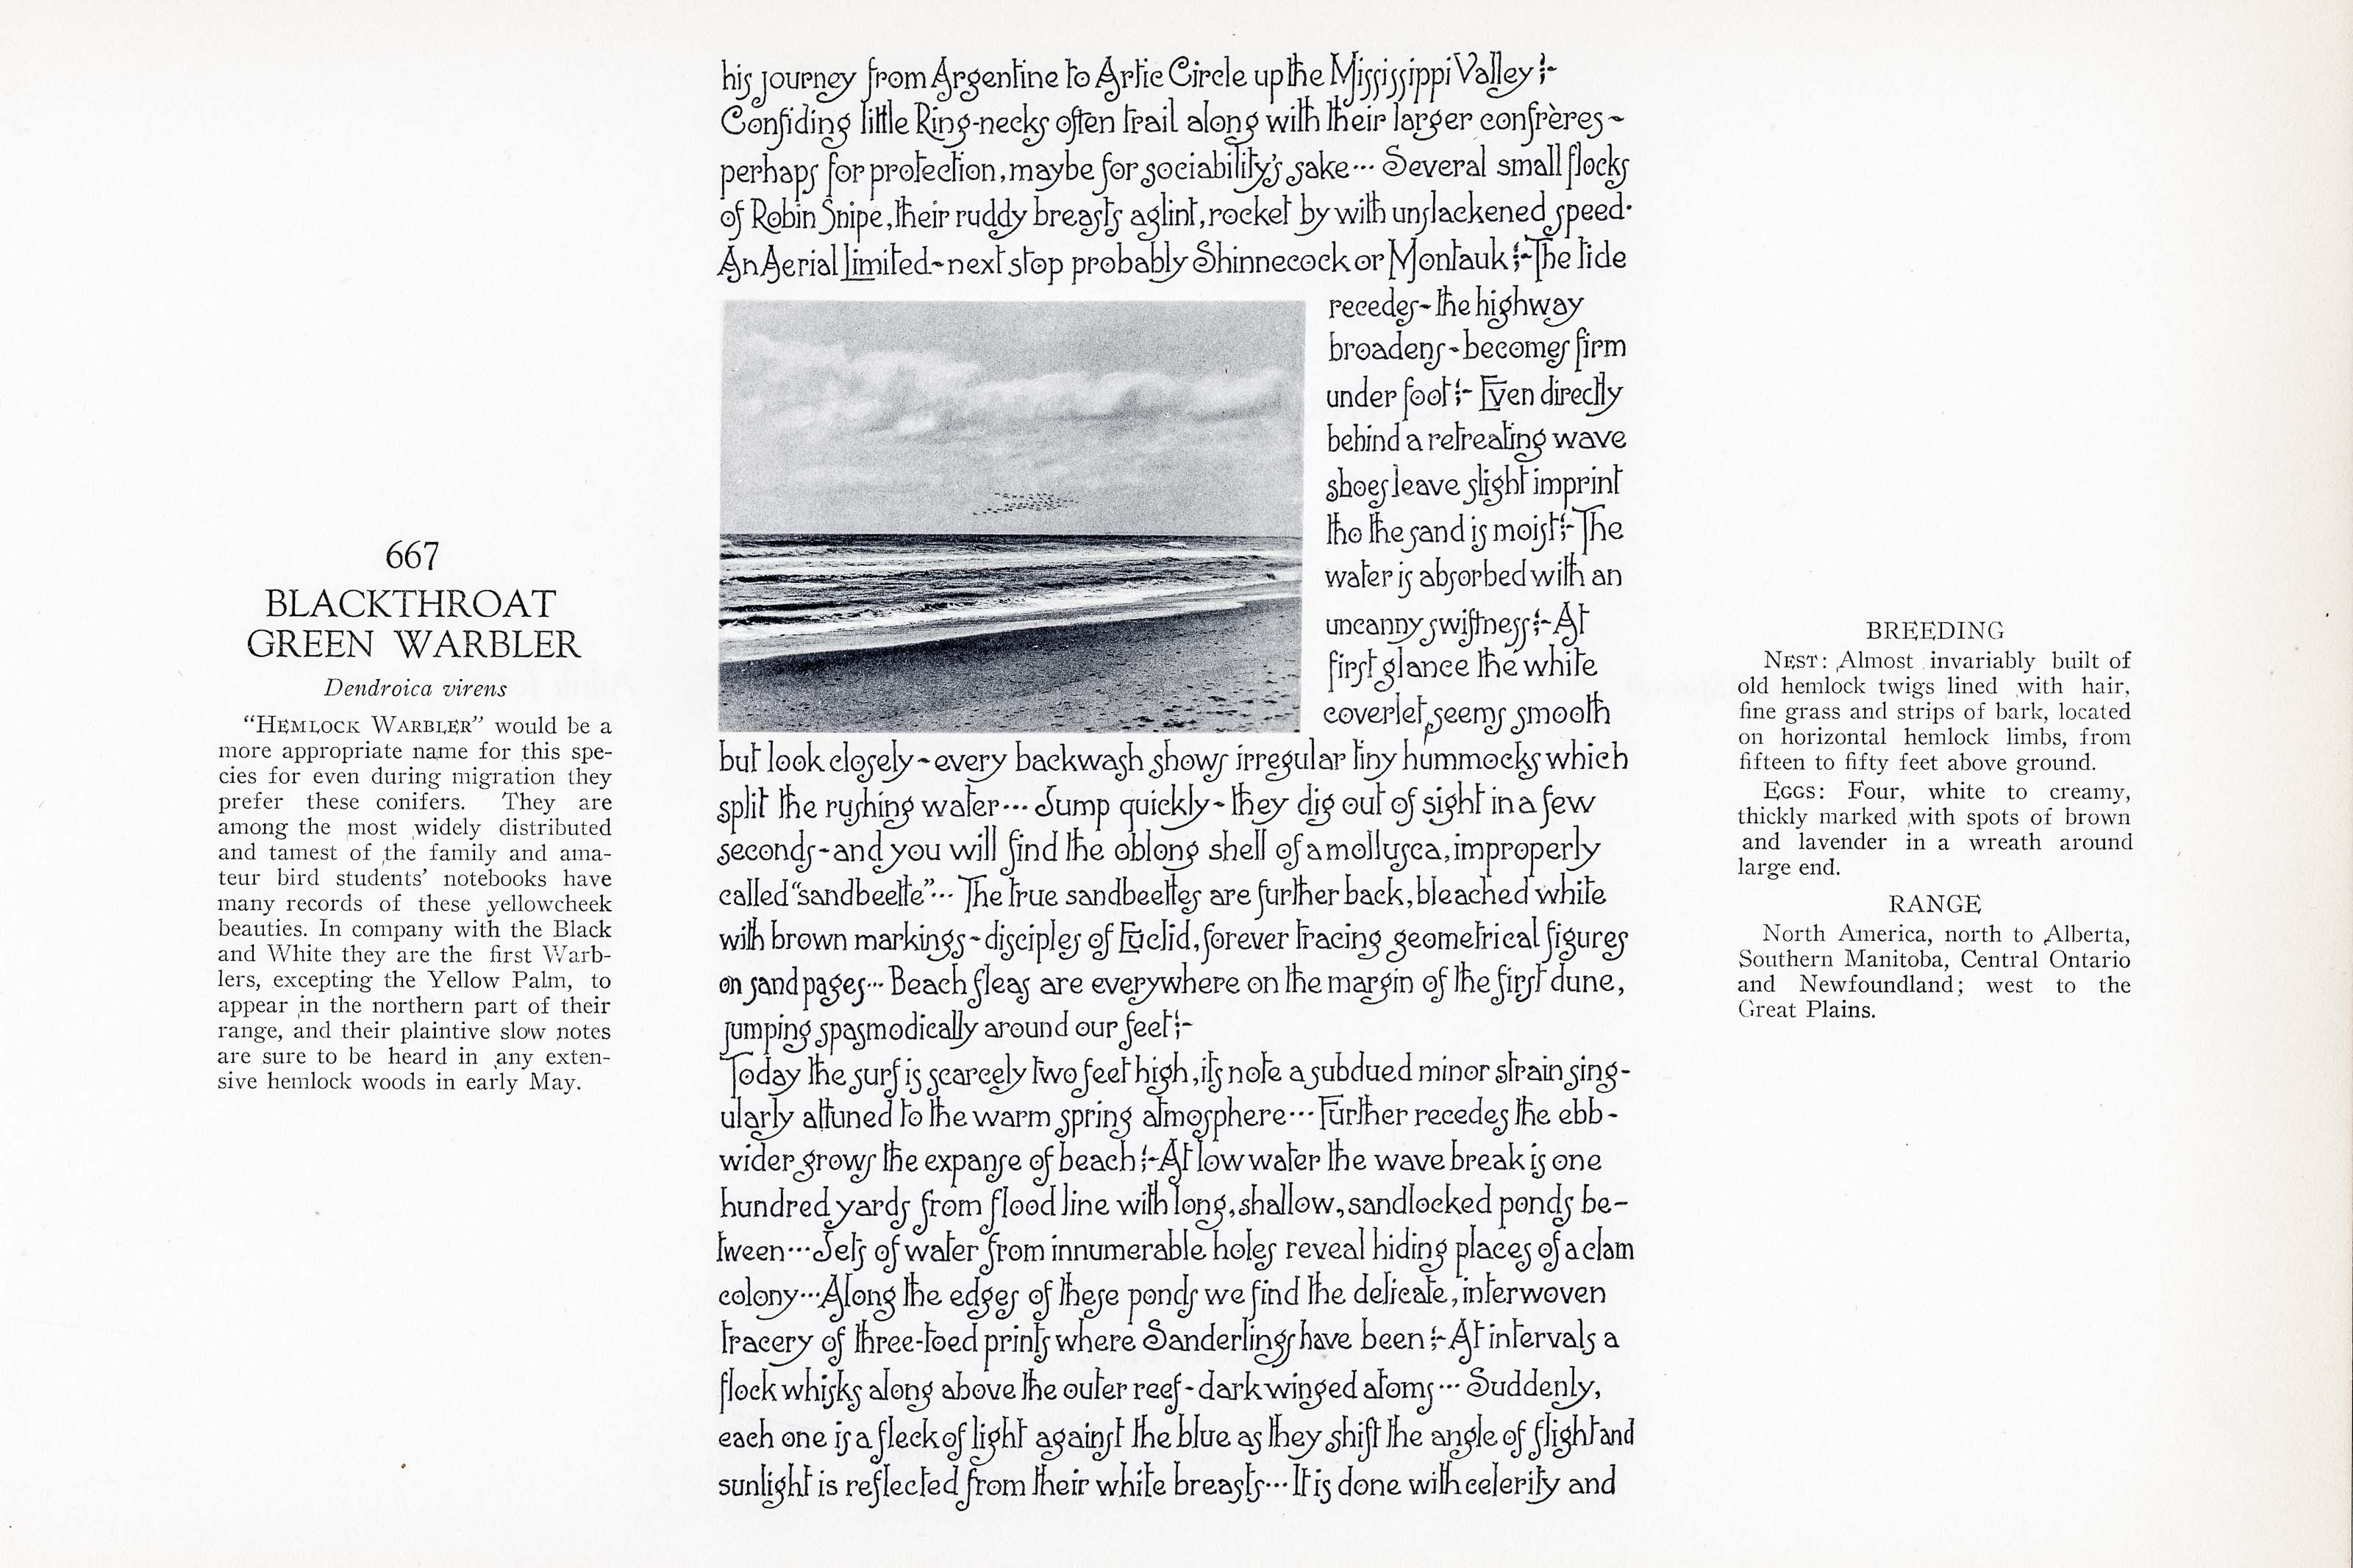 667
BLACKTHROAT
GREEN WARBLER
Dendroica virens
"HEMLOCK WARBLER" would be a
more appropriate name for this spe-
cies for even during migration they
prefer these conifers. They are
among the most widely distributed
and tamest of the family and ama-
teur bird students' notebooks have
many records of these yellowcheek
beauties. In company with the Black
and White they are the first Warb-
lers, excepting the Yellow Palm, to
appear in the northern part of their
range, and their plaintive slow notes
are sure to be heard in any exten-
sive hemlock woods in early May.
his journey from Argentine to Artic Circle up the Mississippi Valley :-
Confiding little Ring-necks often trail along with their larger confrères ~
perhaps for protection, maybe for sociability's sake... Several small flocks
of Robin Snipe, their ruddy breasts aglint, rocket by with unslackened speed.
An Aerial Limited ~ next stop probably Shinnecock or Montauk :- The tide
recedes ~ the highway
broadens ~ becomes firm
under foot :- Even directly
behind a retreating wave
shoes leave slight imprint
tho the sand is moist :- The
water is absorbed with an
uncanny swiftness :- At
first glance the white
coverlet seems smooth
but look closely ~ every backwash shows irregular tiny hummocks which
split the rushing water... Jump quickly ~ they dig out of sight in a few
seconds ~ and you will find the oblong shell of a mollusca, improperly
called "sandbeetle"... The true sandbeetles are further back, bleached white
with brown markings ~ disciples of Euclid, forever tracing geometrical figures
on sand pages... Beach fleas are everywhere on the margin of the first dune,
jumping spasmodically around our feet :-
Today the surf is scarcely two feet high, its note a subdued minor strain sing-
ularly attuned to the warm spring atmosphere... Further recedes the ebb-
wider grows the expanse of beach :- At low water the wave break is one
hundred yards from flood line with long, shallow, sandlocked ponds be-
tween... Jets of water from innumerable holes reveal hiding places of a clam
colony... Along the edges of these ponds we find the delicate, interwoven
tracery of three-toed prints where Sanderlings have been :- At intervals a
flock whisks along above the outer reef - dark winged atoms... Suddenly,
each one is a fleck of light against the blue as they shift the angle of flight and
sunlight is reflected from their white breasts... It is done with celerity and
BREEDING
NEST: Almost invariably built of
old hemlock twigs lined with hair,
fine grass and strips of bark, located
on horizontal hemlock limbs, from
fifteen to fifty feet above ground.
EGGS: Four, white to creamy,
thickly marked with spots of brown
and lavender in a wreath around
large end.
RANGE
North America, north to Alberta,
Southern Manitoba, Central Ontario
and Newfoundland; west to the
Great Plains.